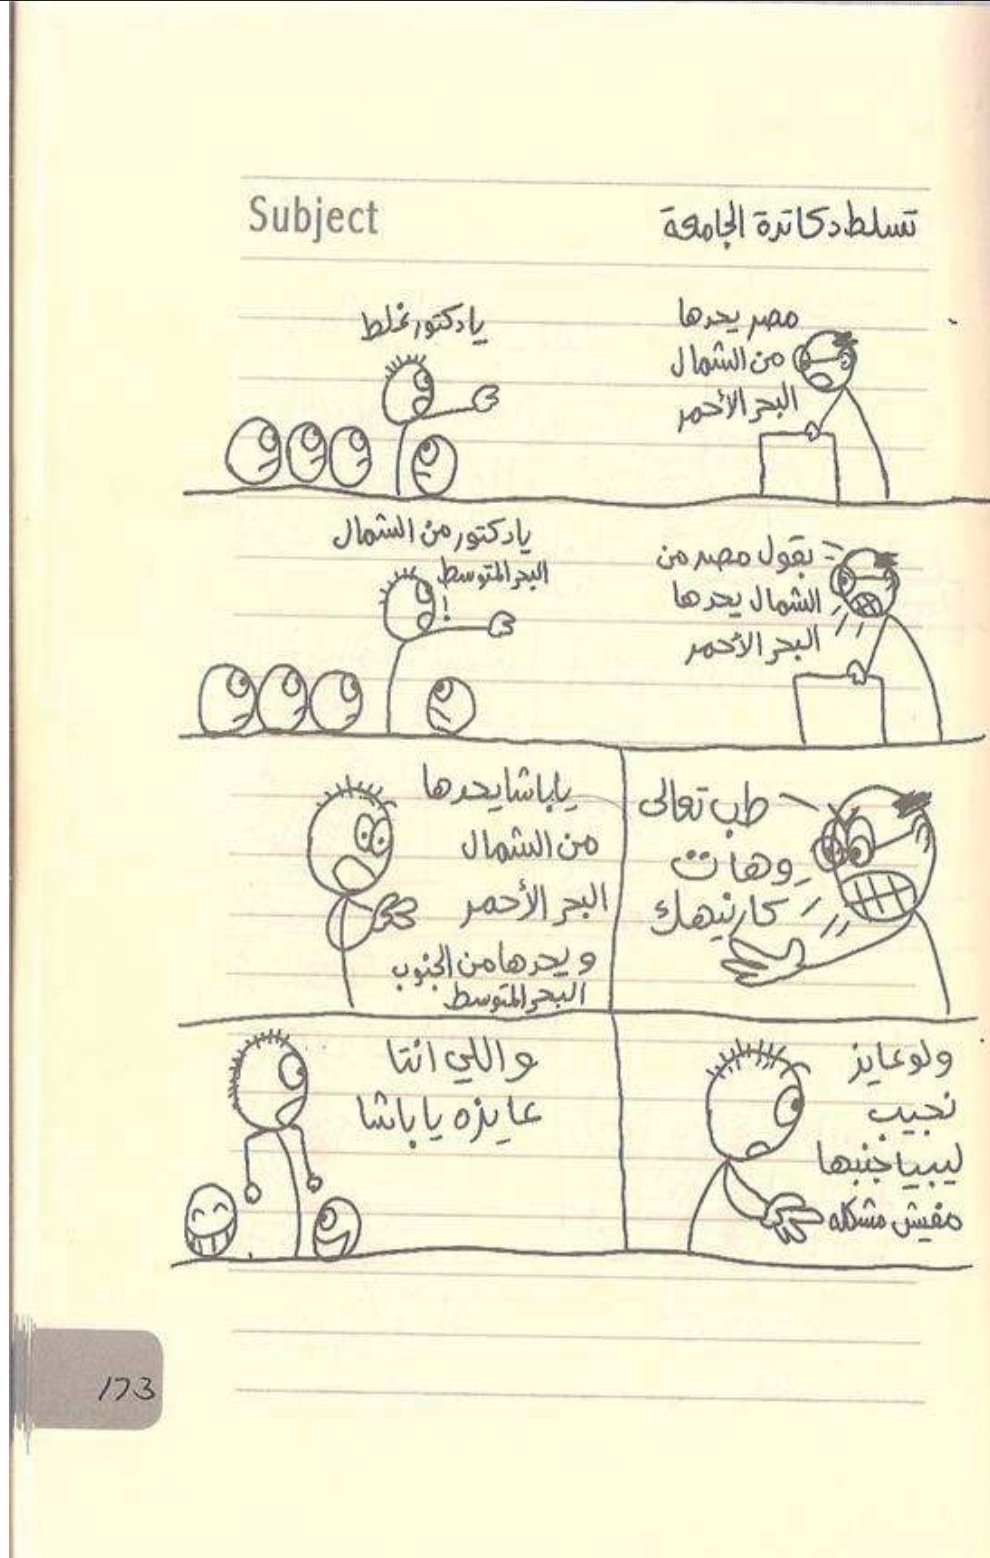 Subject
تسلط دكاترة الجامعة
مصر يحدها
من الشمال
البحر الأحمر
يا دكتور غلط
بقول مصر من
الشمال يحدها
البحر الأحمر
يا دكتور من الشمال
البحر المتوسط
!
طب تعالى
وهات
كارنيهك
يا باشا يحدها
من الشمال
البحر الأحمر
و يحدها من الجنوب
البحر المتوسط
ولو عايز
نجيب
ليبيا جنبها
مفيش مشكله
واللي انتا
عايزه يا باشا
173